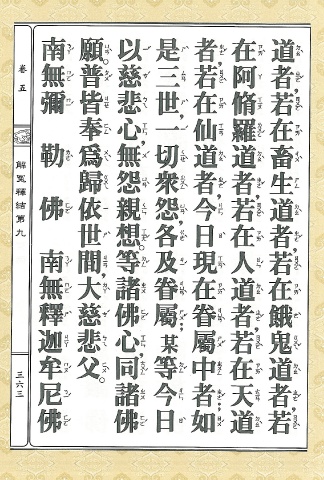 道者。若在畜生道者。若在餓鬼道者。若
在阿脩羅道者。若在人道者。若在天道
者。若在仙道者。今日現在眷屬中者。如
是三世。一切眾怨。各及眷屬。某等今日
以慈悲心。無怨親想。等諸佛心。同諸佛
願。普皆奉為歸依世間。大慈悲父。
南無彌勒佛 南無釋迦牟尼佛
卷五
解冤釋結第九
三六三